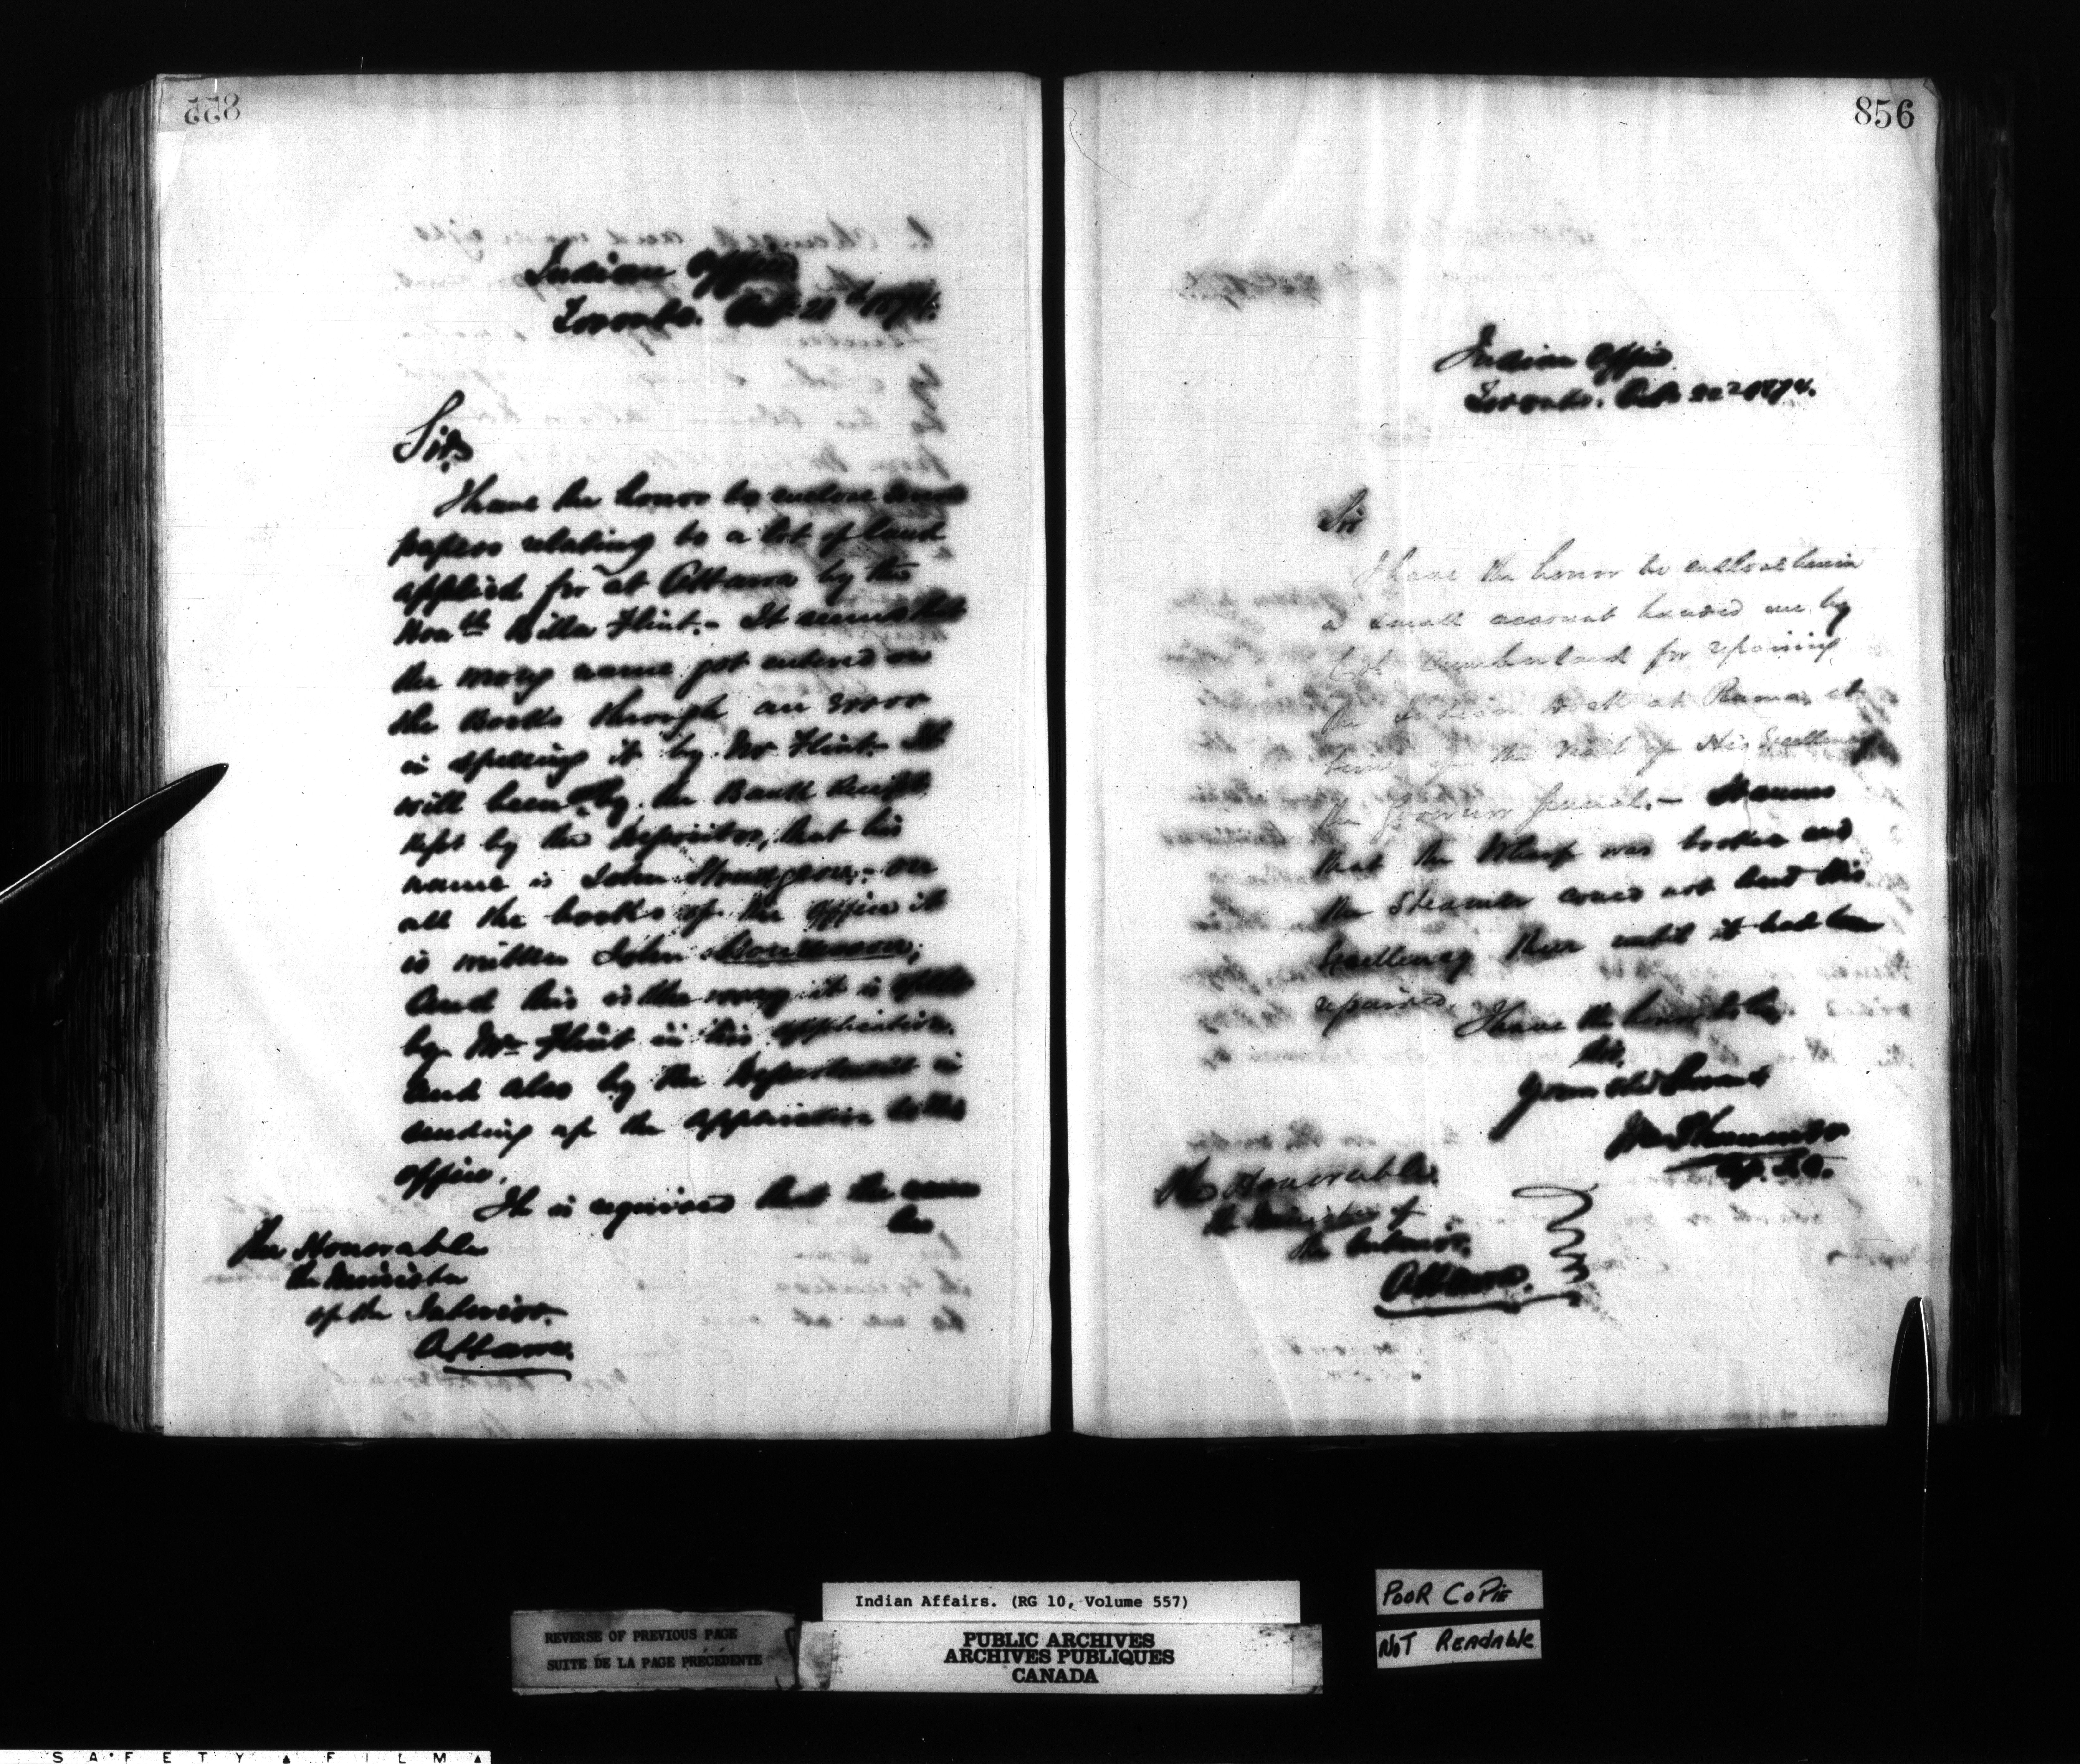 855
Indian Office
Toronto. Oct 21st 1874.
Sir,
I have the honor to enclose some
papers relating to a lot of land
applied for at Ottawa by the
Honble Billa Flint.- It seems that
the wrong name got entered on
the Books through an error
in spelling it by Mr Flint. It
will be seen by the Bank Receipt
kept by the Depositor, that his
name is John - on
all the books of the office it
is written John
and this is the way it is
by Mr Flint in his application.
and also by the Department in
sending up the application to this
office.
It is required that the name
be
The Honorable
the Minister
of the Interior.
Ottawa.
856
Indian Office
Toronto. Oct 22nd 1874.
Sir
I have the honor to enclose herein
a small account handed me by
Col. Cumberland for repairing
the Indian Dock at Rama, at
time of the visit of His Excellency
the Governor General.-
that the Wharf was broken and
the Steamer could not land His
Excellency there until it had been
repaired. I have the honor to be
Sir,
Your Obt Servant
The Honorable
the Minister of
the Interior.
Ottawa.
Indian Affairs. (RG 10, Volume 557)
REVERSE OF PREVIOUS PAGE
SUITE DE LA PAGE PRÉCÉDENTE
PUBLIC ARCHIVES
ARCHIVES PUBLIQUES
CANADA
POOR COPIE
NOT READABLE
SAFETY FILM